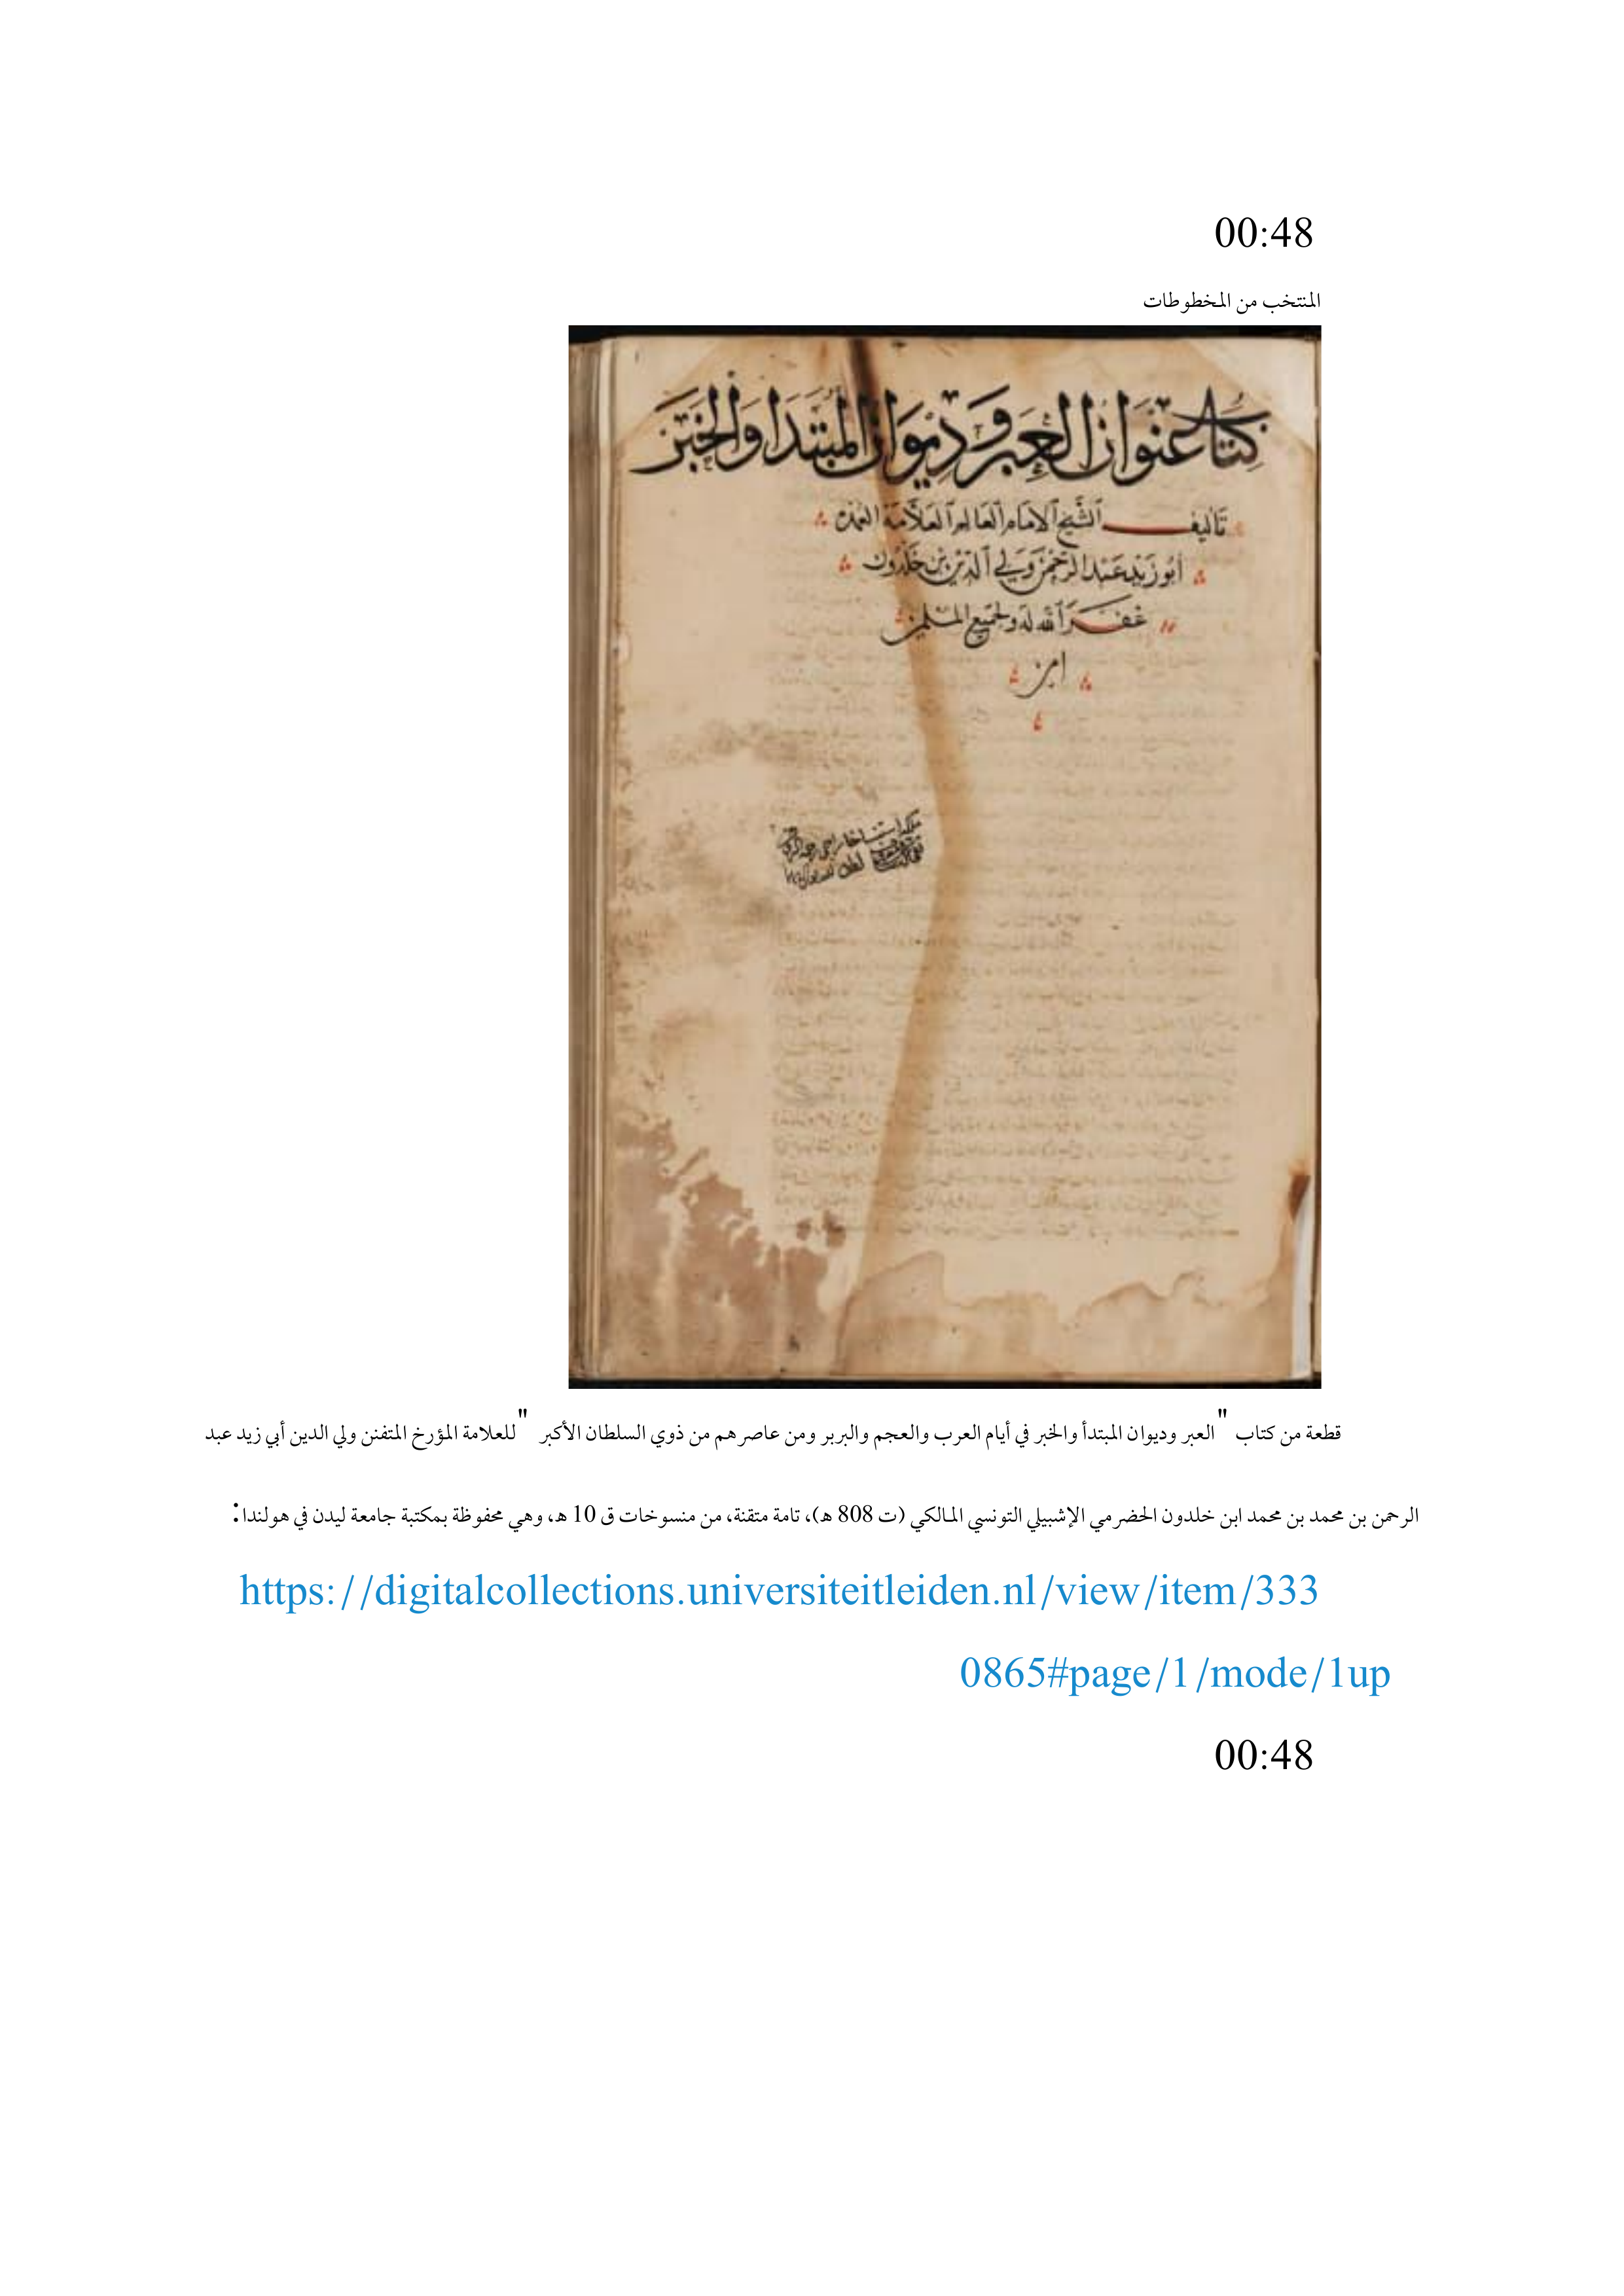 00:48
المنتخب من المخطوطات
كتاب عنوان العبر وديوان المبتدا والخبر
تأليف الشيخ الامام العالم العلامة العمدة
ابو زيد عبد الرحمن ولي الدين بن خلدون
غفر الله له ولجميع المسلمين
امين
قطعة من كتاب "العبر وديوان المبتدأ والخبر في أيام العرب والعجم والبربر ومن عاصرهم من ذوي السلطان الأكبر" للعلامة المؤرخ المتفنن ولي الدين أبي زيد عبد
الرحمن بن محمد بن محمد ابن خلدون الحضرمي الإشبيلي التونسي المالكي (ت 808 هـ)، تامة متقنة، من منسوخات ق 10 هـ، وهي محفوظة بمكتبة جامعة ليدن في هولندا:
https://digitalcollections.universiteitleiden.nl/view/item/333
0865#page/1/mode/1up
00:48